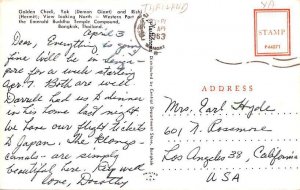 Golden Chedi, Yak (Demon and Rishi
(Hermit) View looking North - Western Port of
The Emerald Buddha Temple Compound,
Bangkok, Thailand.
THAILAND
April 3
Dear, Everything is going
fine. Will be in
for a week starting
April 7. Both are well.
Darrell had us to dinner
in his home last night. We
have our flight tickets
to Japan. The Klongs
canals - are simply
beautiful here. Keep well
love, Dorothy
1963
STAMP
ADDRESS
Mrs. Earl Hyde
601 N. Rossmore
Los Angeles 38, California
USA